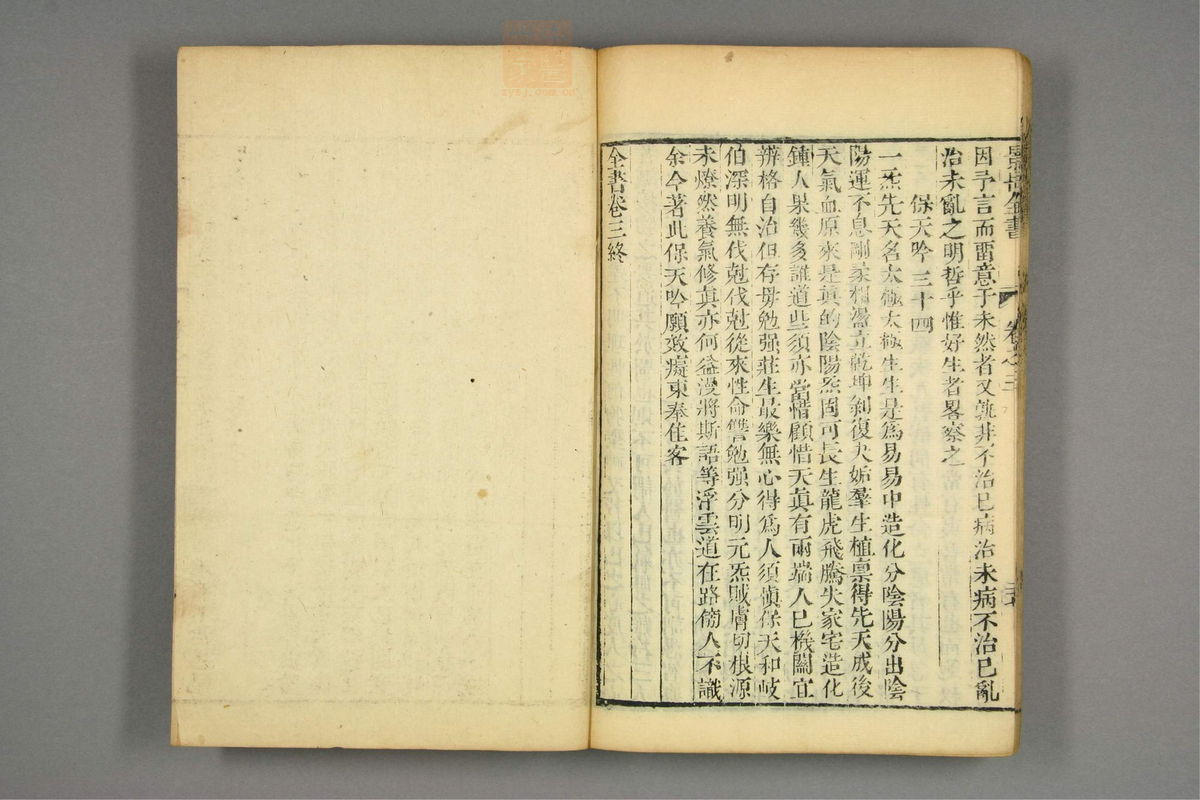 景岳全書 卷之三
因予言而畱意于未然者又孰非不治已病治未病不治已亂
治未亂之明哲乎惟好生者畧察之
保天吟三十四
一炁先天名太極太極生生是爲易易中造化分陰陽分出陰
陽運不息剛柔相盪立乾坤剝復夬姤羣生植禀得先天成後
天氣血原來是眞的陰陽炁固可長生龍虎飛騰失家宅造化
鍾人果幾多誰道些須亦當惜顧惜天眞有兩端人已機關宜
辨格自治但存毋勉强莊生最樂無心得爲人須愼保天和岐
伯深明無伐尅伐尅從來性命讐勉强分明元炁賊膚切根源
未燎然養氣修眞亦何益漫將斯語等浮雲道在路傍人不識
余今著此保天吟願效癡東奉佳客
全書卷三終
zysj.com.cn